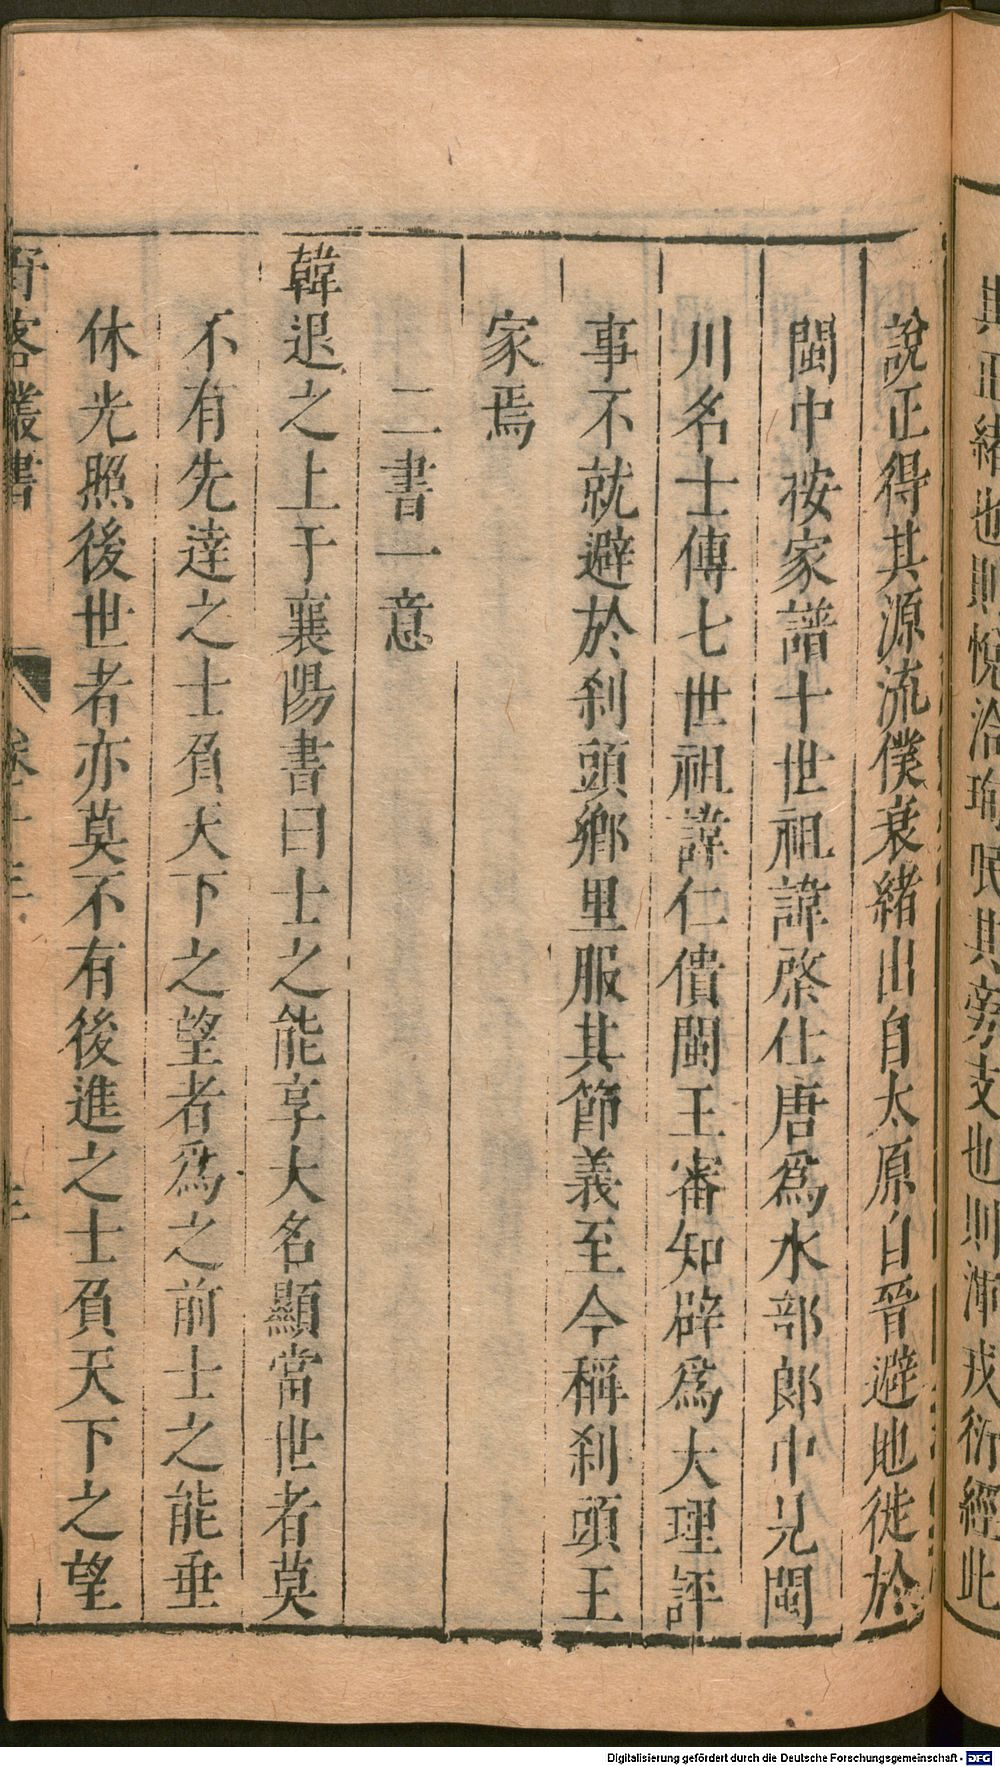 其正緒也則悅洽珣珉其旁支也則渾戎衍經此
說正得其源流僕衰緒出自太原自晉避地徙於
閩中按家譜十世祖諱棨仕唐為水部郎中見閩
川名士傳七世祖諱仁僨閩王審知辟為大理評
事不就避於剎頭鄉里服其節義至今稱剎頭王
家焉
二書一意
韓退之上于襄陽書曰士之能享大名顯當世者莫
不有先達之士負天下之望者為之前士之能垂
休光照後世者亦莫不有後進之士負天下之望
野客叢書 卷十三 三
Digitalisierung gefördert durch die Deutsche Forschungsgemeinschaft - DFG